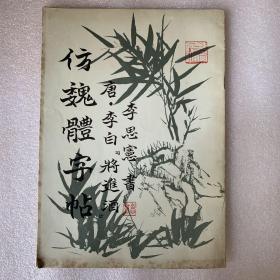 仿魏體字帖
唐·李白"將進酒"
李思憲書